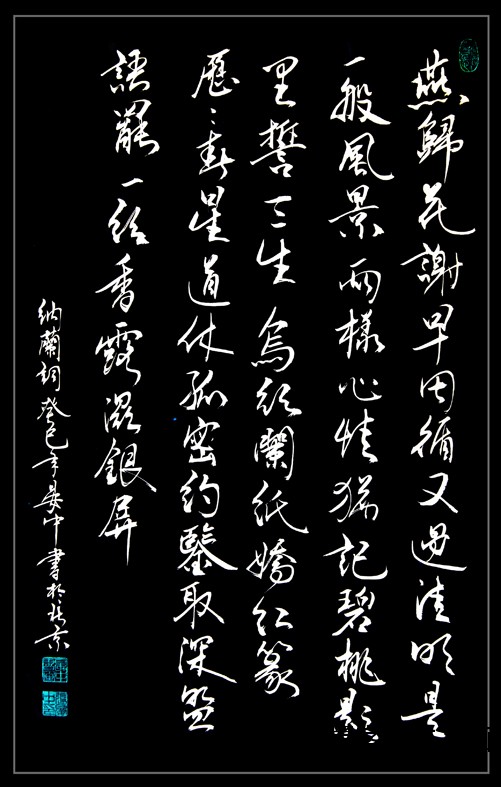 燕歸花謝早因循又過清明是
一般風景兩樣心情猶記碧桃影
里誓三生烏絲闌紙嬌紅篆
歷歷春星道休孤密約鑒取深盟
語罷一絲香露濕銀屏
納蘭詞癸巳年晏中書於北京